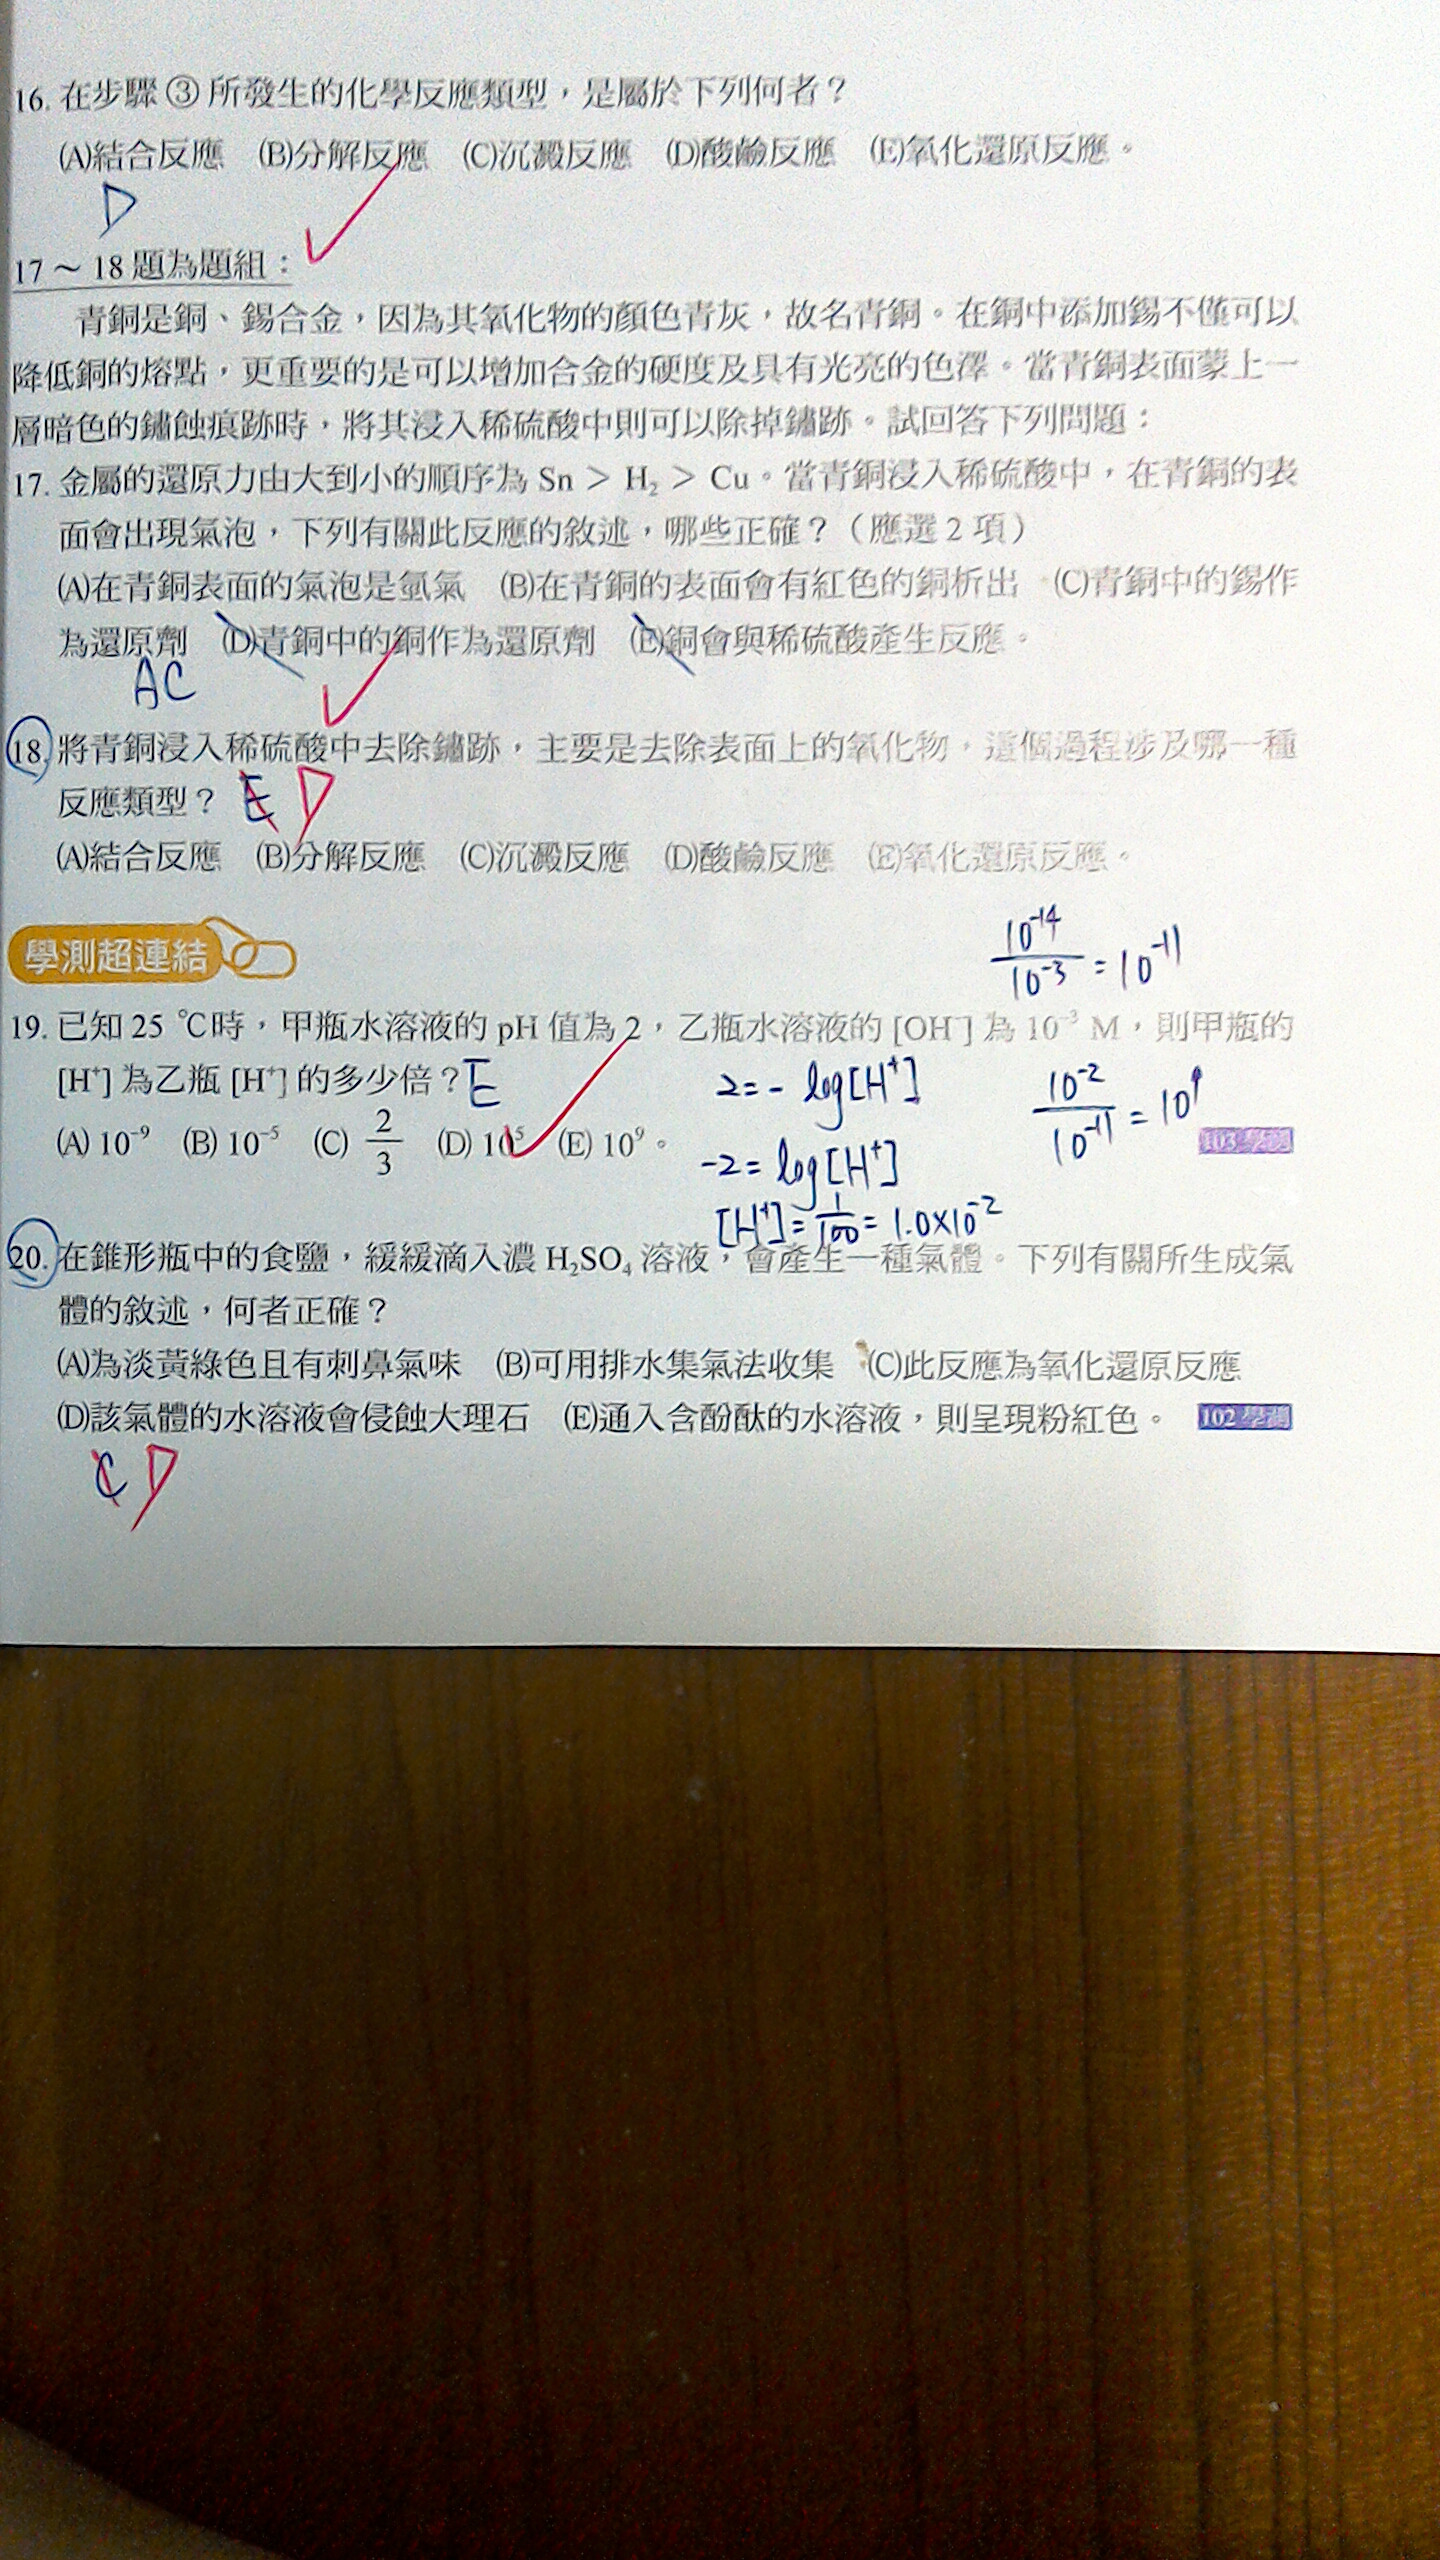 16. 在步驟 ③ 所發生的化學反應類型，是屬於下列何者？
(A)結合反應　(B)分解反應　(C)沉澱反應　(D)酸鹼反應　(E)氧化還原反應。
D
17～18 題為題組：
青銅是銅、錫合金，因為其氧化物的顏色青灰，故名青銅。在銅中添加錫不僅可以
降低銅的熔點，更重要的是可以增加合金的硬度及具有光亮的色澤。當青銅表面蒙上一
層暗色的鏽蝕痕跡時，將其浸入稀硫酸中則可以除掉鏽跡。試回答下列問題：
17. 金屬的還原力由大到小的順序為 Sn > H₂ > Cu。當青銅浸入稀硫酸中，在青銅的表
面會出現氣泡，下列有關此反應的敘述，哪些正確？（應選 2 項）
(A)在青銅表面的氣泡是氫氣　(B)在青銅的表面會有紅色的銅析出　(C)青銅中的錫作
為還原劑　(D)青銅中的銅作為還原劑　(E)銅會與稀硫酸產生反應。
AC
18. 將青銅浸入稀硫酸中去除鏽跡，主要是去除表面上的氧化物，這個過程涉及哪一種
反應類型？ E D
(A)結合反應　(B)分解反應　(C)沉澱反應　(D)酸鹼反應　(E)氧化還原反應。
學測超連結
10⁻¹⁴/10⁻³ = 10⁻¹¹
19. 已知 25 ℃時，甲瓶水溶液的 pH 值為 2，乙瓶水溶液的 [OH⁻] 為 10⁻³ M，則甲瓶的
[H⁺] 為乙瓶 [H⁺] 的多少倍？ E
(A) 10⁻⁹　(B) 10⁻⁵　(C) 2/3　(D) 10⁵　(E) 10⁹。
103 學測
2 = - log[H⁺]
-2 = log[H⁺]
[H⁺] = 1/100 = 1.0×10⁻²
10⁻²/10⁻¹¹ = 10⁹
20. 在錐形瓶中的食鹽，緩緩滴入濃 H₂SO₄ 溶液，會產生一種氣體。下列有關所生成氣
體的敘述，何者正確？
(A)為淡黃綠色且有刺鼻氣味　(B)可用排水集氣法收集　(C)此反應為氧化還原反應
(D)該氣體的水溶液會侵蝕大理石　(E)通入含酚酞的水溶液，則呈現粉紅色。 102 學測
C D